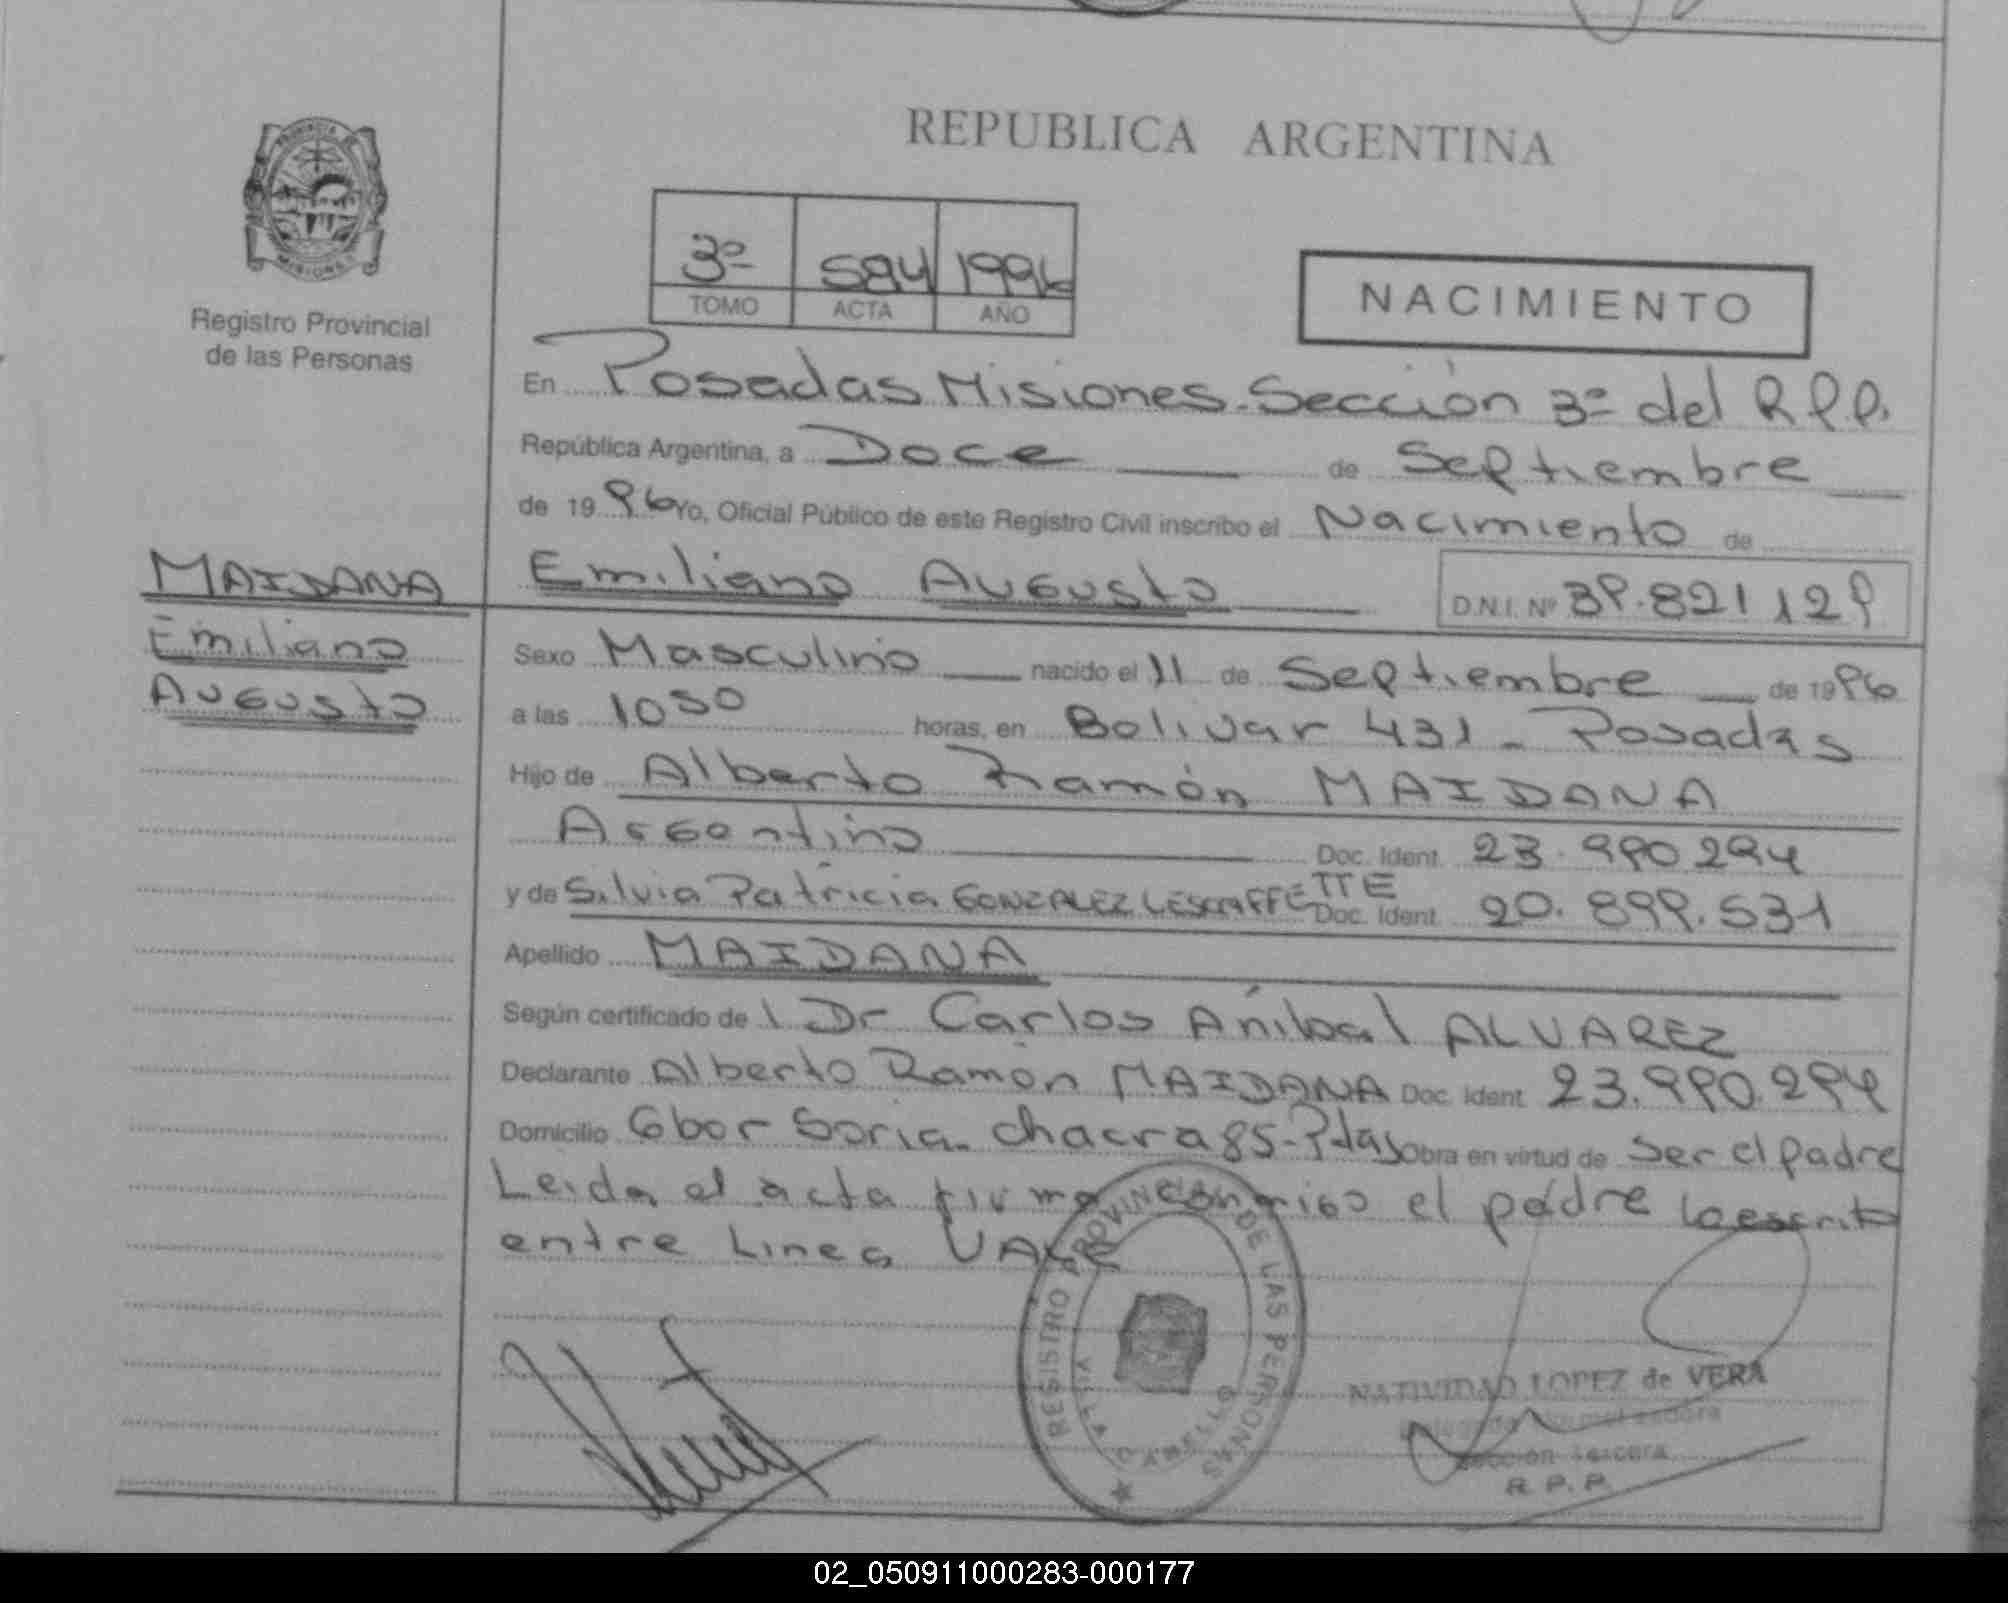 REPUBLICA ARGENTINA
PROVINCIA DE
MISIONES
Registro Provincial
de las Personas
3º 584 1996
TOMO ACTA AÑO
NACIMIENTO
En Posadas Misiones. Sección 3º del R.P.P.
República Argentina, a Doce de Septiembre
de 1996 Yo, Oficial Público de este Registro Civil inscribo el Nacimiento de
MAIDANA Emiliano Augusto D.N.I. Nº 39.821 129
Emiliano
Augusto
Sexo Masculino nacido el 11 de Septiembre de 1996
a las 1050 horas, en Bolivar 431 - Posadas
Hijo de Alberto Ramón MAIDANA
Argentino Doc. Ident. 23.990.294
y de Silvia Patricia GONZALEZ LESCAFFETTE Doc. Ident. 20.899.531
Apellido MAIDANA
Según certificado del Dr Carlos Anibal ALVAREZ
Declarante Alberto Ramón MAIDANA Doc. Ident. 23.990.294
Domicilio Gbor Soria. chacra 85-Pdas Obra en virtud de ser el padre
Leida el acta firma conmigo el padre lo escrito
entre Linea VALE
REGISTRO PROVINCIAL DE LAS PERSONAS
VILLA CABELLO
NATIVIDAD LOPEZ de VERA
Sección Tercera
R. P. P.
02_050911000283-000177